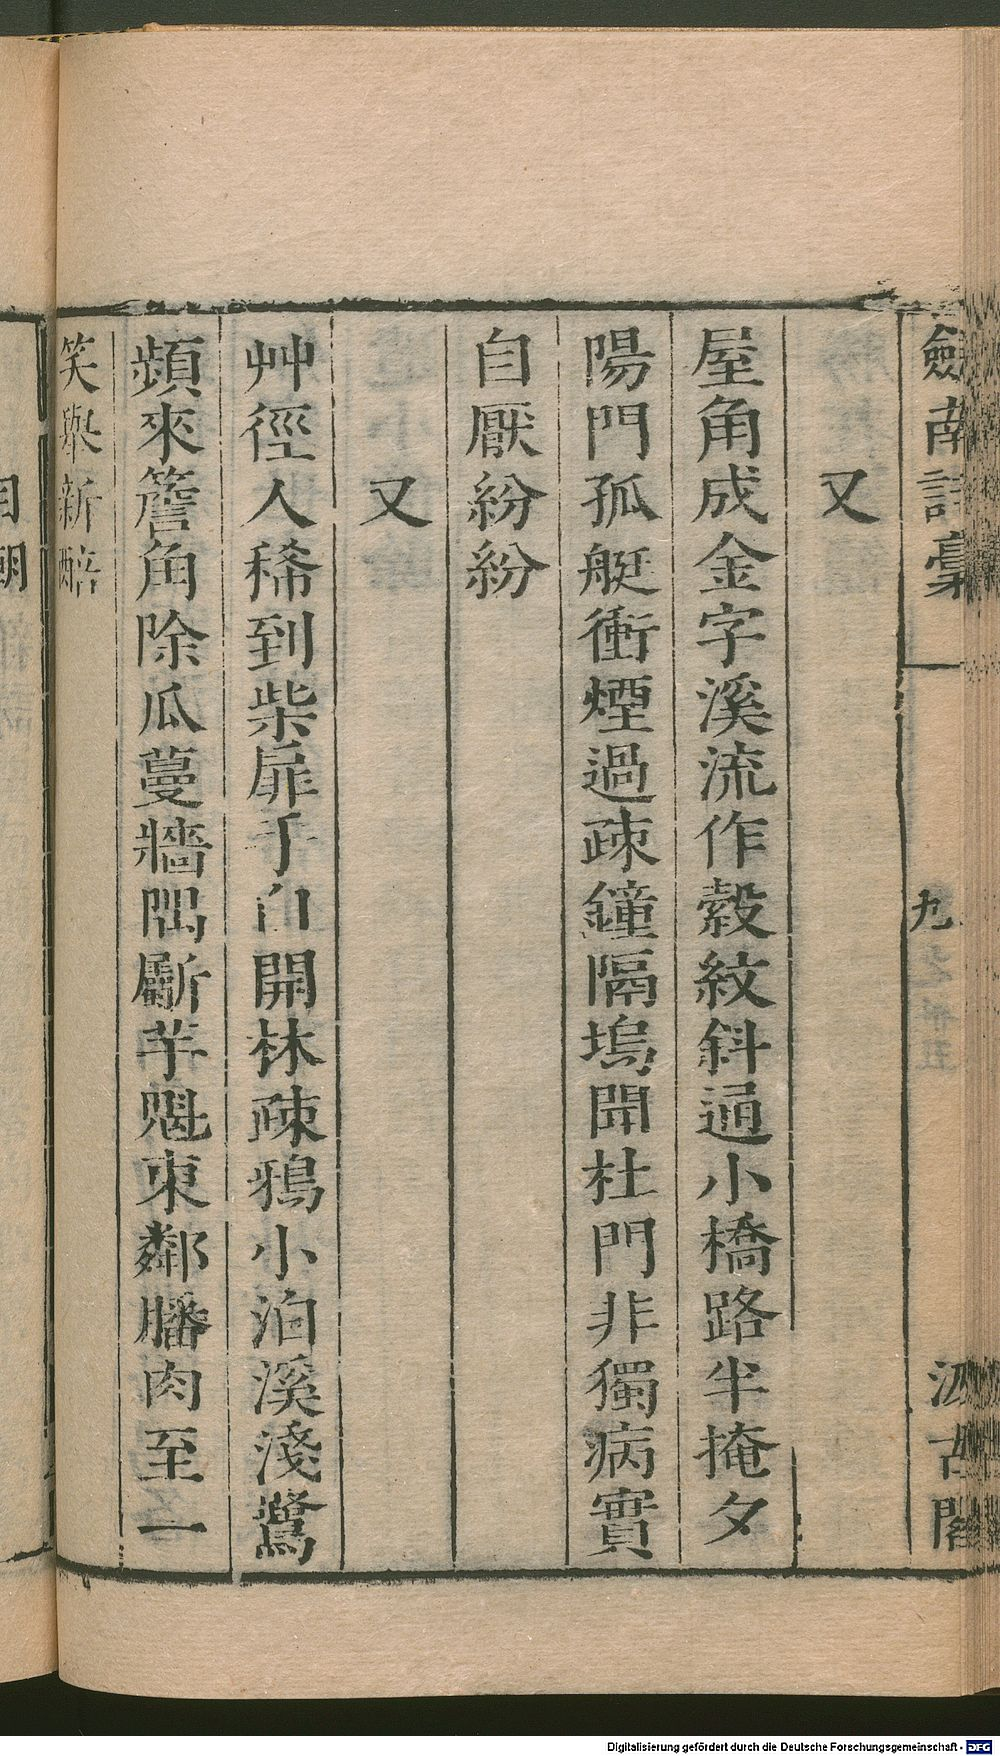 劍南詩稾 九 汲古閣
又
屋角成金字溪流作縠紋斜通小橋路半掩夕
陽門孤艇衝煙過疎鐘隔塢聞杜門非獨病實
自厭紛紛
又
艸徑人稀到柴扉手自開林疎鴉小泊溪淺鷺
頻來簷角除瓜蔓牆隅斸芋魁東鄰膰肉至一
笑舉新醅
Digitalisierung gefördert durch die Deutsche Forschungsgemeinschaft - DFG